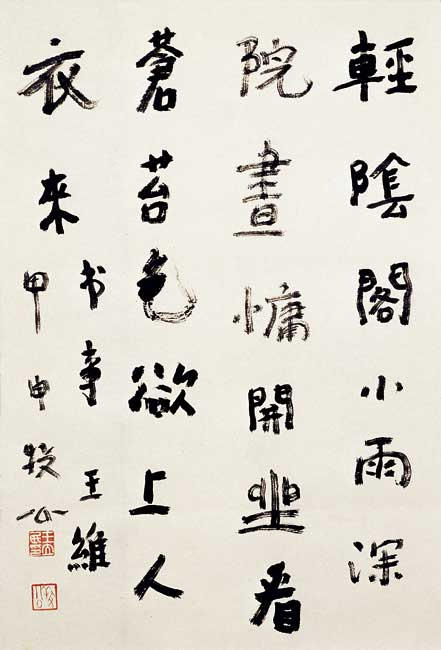 輕陰閣小雨深
院晝慵開坐看
蒼苔色欲上人
衣来
书事王維
甲申